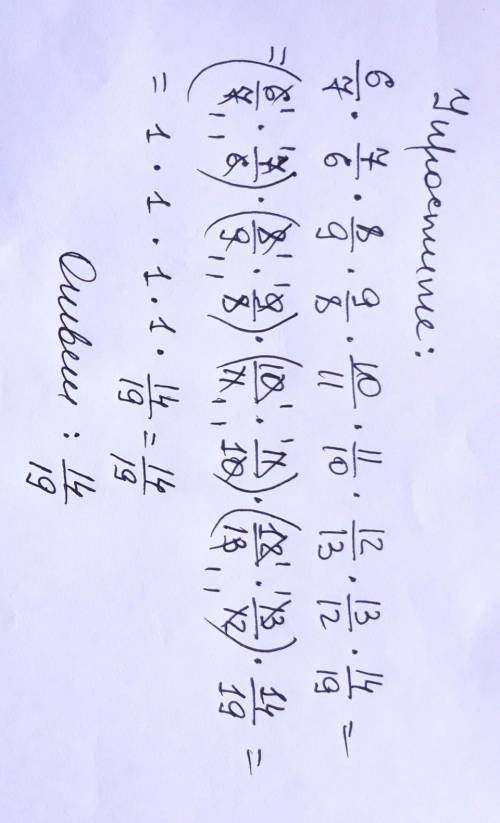 Упростите:
6/7 · 7/6 · 8/9 · 9/8 · 10/11 · 11/10 · 12/13 · 13/12 · 14/19 =
= (6/7 · 7/6) · (8/9 · 9/8) · (10/11 · 11/10) · (12/13 · 13/12) · 14/19 =
= 1 · 1 · 1 · 1 · 14/19 = 14/19
Ответ: 14/19